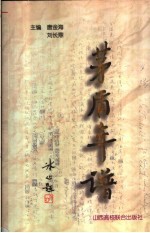 主编 唐金海
刘长鼎
茅盾年谱
冰心题
山西高校联合出版社